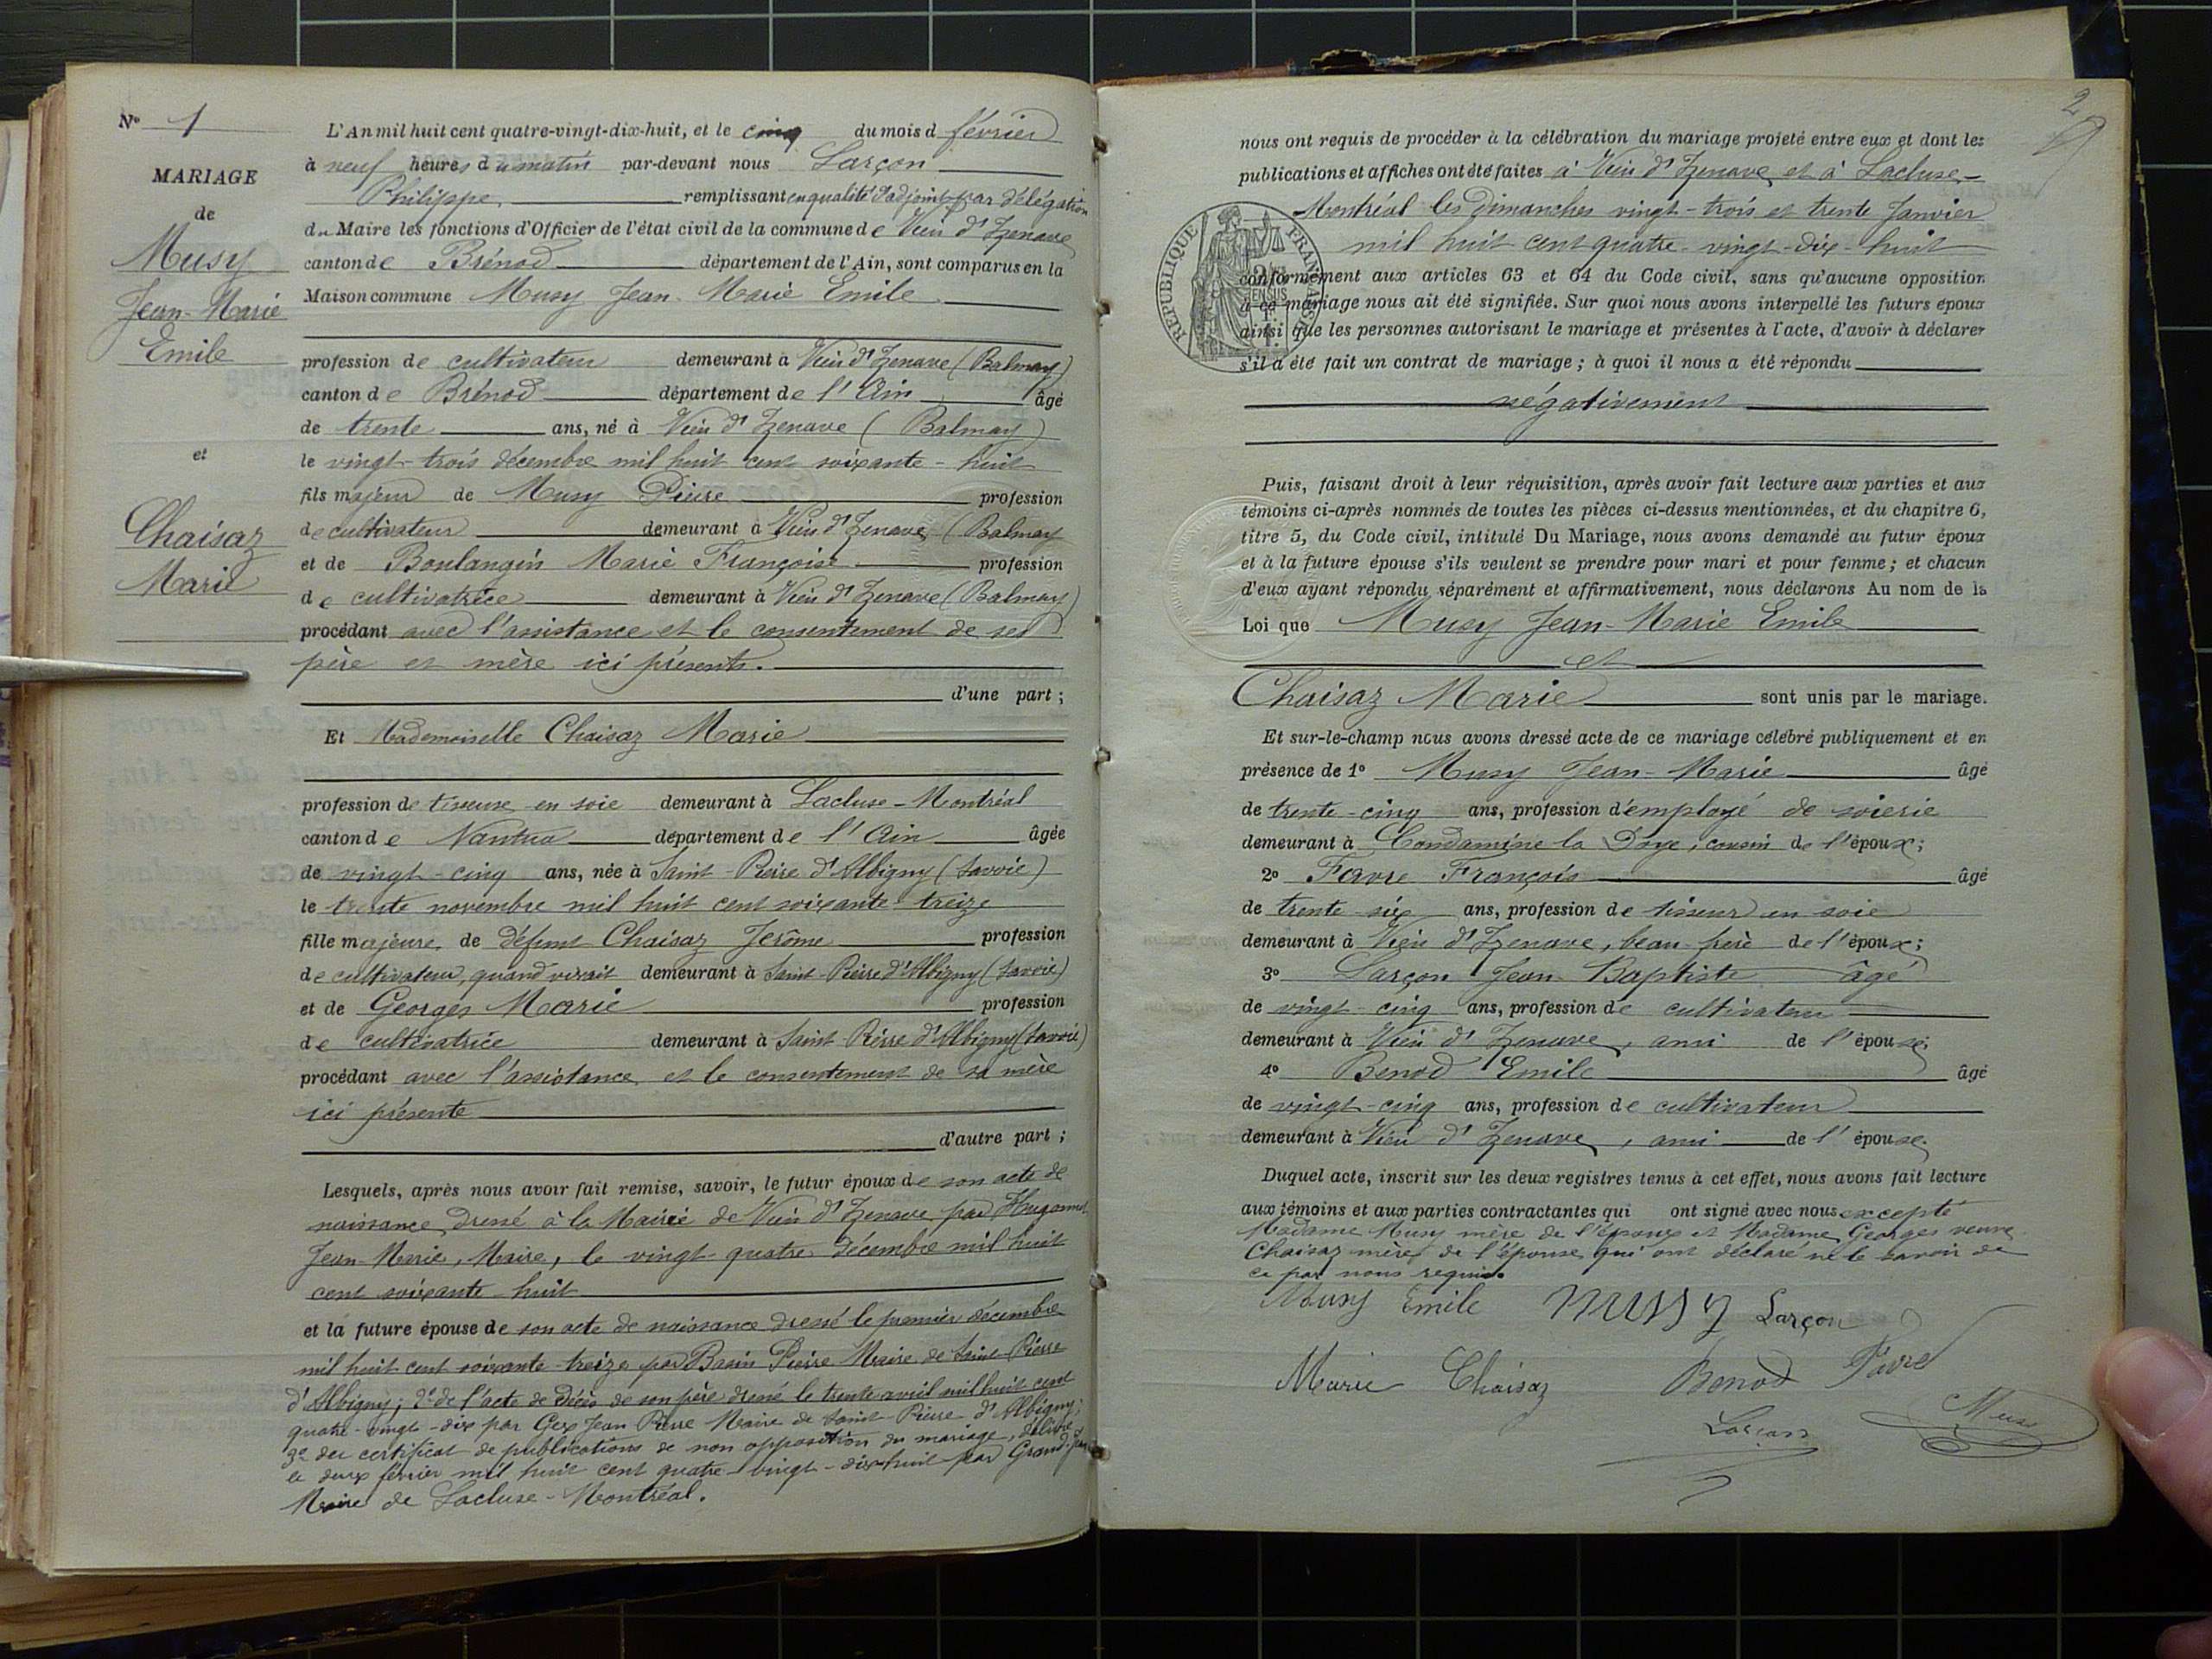 N° 1
MARIAGE
de
Musy
Jean-Marie
Emile
et
Chaisaz
Marie
L'An mil huit cent quatre-vingt-dix-huit, et le cinq du mois d février
à neuf heures du matin par-devant nous Larçon
Philippe, remplissant en qualité d'adjoint par délégation
du Maire les fonctions d'Officier de l'état civil de la commune de Vieu d'Izenave
canton de Brénod département de l'Ain, sont comparus en la
Maison commune Musy Jean-Marie Emile
profession de cultivateur demeurant à Vieu d'Izenave (Balmay)
canton de Brénod département de l'Ain âgé
de trente ans, né à Vieu d'Izenave (Balmay)
le vingt-trois décembre mil huit cent soixante-huit
fils majeur de Musy Pierre profession
de cultivateur demeurant à Vieu d'Izenave (Balmay
et de Boulangin Marie Françoise profession
de cultivatrice demeurant à Vieu d'Izenave (Balmay)
procédant avec l'assistance et le consentement de ses
père et mère ici présents.
d'une part ;
Et Mademoiselle Chaisaz Marie
profession de tisseuse en soie demeurant à Lacluse-Montréal
canton de Nantua département de l'Ain âgée
de vingt-cinq ans, née à Saint-Pierre d'Albigny (Savoie)
le trente novembre mil huit cent soixante-treize
fille majeure, de défunt Chaisaz Jerôme profession
de cultivateur, quand vivait demeurant à Saint-Pierre d'Albigny (Savoie)
et de Georges Marie profession
de cultivatrice demeurant à Saint-Pierre d'Albigny (Savoie)
procédant avec l'assistance et le consentement de sa mère
ici présente
d'autre part ;
Lesquels, après nous avoir fait remise, savoir, le futur époux de son acte de
naissance dressé à la Mairie de Vieu d'Izenave par Hugonnet
Jean-Marie, Maire, le vingt-quatre décembre mil huit
cent soixante-huit
et la future épouse de son acte de naissance dressé le premier décembre
mil huit cent soixante-treize par Basin Pierre Maire de Saint-Pierre
d'Albigny; 2° de l'acte de décès de son père dressé le trente avril mil huit cent
quatre-vingt-dix par Gex Jean Pierre Maire de Saint-Pierre d'Albigny;
3° du certificat de publications de non opposition du mariage, délivré
le deux février mil huit cent quatre-vingt-dix-huit par Grand-Jean
Maire de Lacluse-Montréal.
2
nous ont requis de procéder à la célébration du mariage projeté entre eux et dont les
publications et affiches ont été faites à Vieu d'Izenave et à Lacluse-
Montréal les dimanches vingt-trois et trente Janvier
mil huit cent quatre-vingt-dix-huit
REPUBLIQUE FRANÇAISE
conformément aux articles 63 et 64 du Code civil, sans qu'aucune opposition
à ce mariage nous ait été signifiée. Sur quoi nous avons interpellé les futurs époux
ainsi que les personnes autorisant le mariage et présentes à l'acte, d'avoir à déclarer
s'il a été fait un contrat de mariage ; à quoi il nous a été répondu
négativement
Puis, faisant droit à leur réquisition, après avoir fait lecture aux parties et aux
témoins ci-après nommés de toutes les pièces ci-dessus mentionnées, et du chapitre 6,
titre 5, du Code civil, intitulé Du Mariage, nous avons demandé au futur époux
et à la future épouse s'ils veulent se prendre pour mari et pour femme ; et chacun
d'eux ayant répondu séparément et affirmativement, nous déclarons Au nom de la
Loi que Musy Jean-Marie Emile
et
Chaisaz Marie sont unis par le mariage.
Et sur-le-champ nous avons dressé acte de ce mariage célébré publiquement et en
présence de 1° Musy Jean-Marie âgé
de trente-cinq ans, profession d'employé de soierie
demeurant à Condamine la Doye, cousin de l'époux;
2° Favre François âgé
de trente-six ans, profession de tisseur en soie
demeurant à Vieu d'Izenave, beau-frère de l'époux;
3° Larçon Jean-Baptiste âgé
de vingt-cinq ans, profession de cultivateur
demeurant à Vieu d'Izenave, ami de l'épouse;
4° Benod Emile âgé
de vingt-cinq ans, profession de cultivateur
demeurant à Vieu d'Izenave, ami de l'épouse.
Duquel acte, inscrit sur les deux registres tenus à cet effet, nous avons fait lecture
aux témoins et aux parties contractantes qui ont signé avec nous excepté
Madame Musy mère de l'époux et Madame Georges veuve
Chaisaz mère de l'épouse, qui ont déclaré ne le savoir de
ce par nous requis.
Musy Emile Mussy Larçon
Marie Chaisaz Benod Favre
Larçon Musy